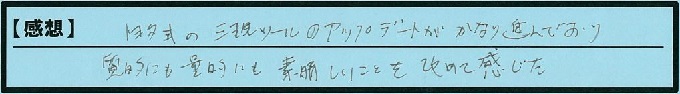 【感想】 トヨタ式の三現ツールのアップデートがかなり進んでおり
質的にも量的にも素晴しいことを改めて感じた